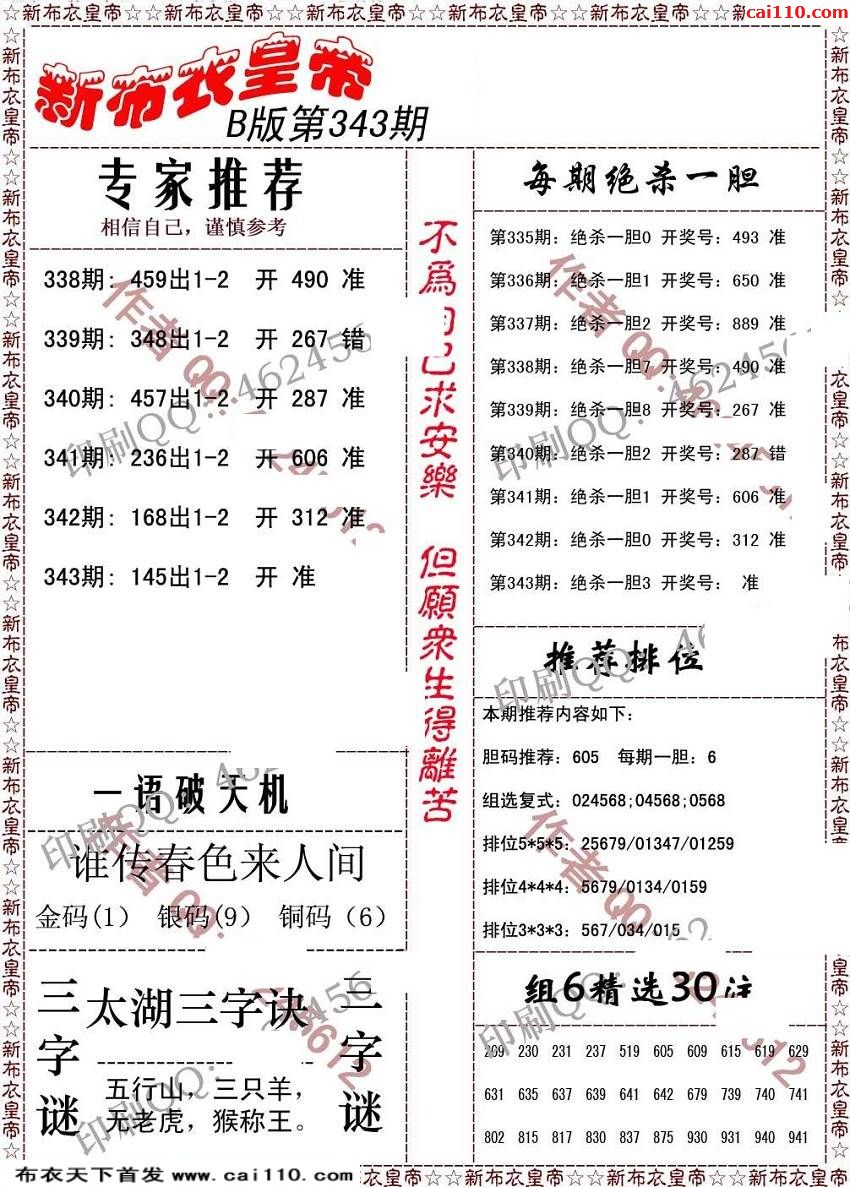 ☆☆新布衣皇帝☆☆新布衣皇帝☆☆新布衣皇帝☆☆新布衣皇帝☆☆新布衣皇帝☆☆
cai110.com
新布衣皇帝
B版第343期
专家推荐
相信自己，谨慎参考
338期：459出1-2 开 490 准
339期：348出1-2 开 267 错
340期：457出1-2 开 287 准
341期：236出1-2 开 606 准
342期：168出1-2 开 312 准
343期：145出1-2 开 准
一语破天机
谁传春色来人间
金码(1) 银码(9) 铜码（6）
三字谜
太湖三字诀
五行山，三只羊，
无老虎，猴称王。
三字谜
不爲自己求安樂 但願衆生得離苦
每期绝杀一胆
第335期：绝杀一胆0 开奖号：493 准
第336期：绝杀一胆1 开奖号：650 准
第337期：绝杀一胆2 开奖号：889 准
第338期：绝杀一胆7 开奖号：490 准
第339期：绝杀一胆8 开奖号：267 准
第340期：绝杀一胆2 开奖号：287 错
第341期：绝杀一胆1 开奖号：606 准
第342期：绝杀一胆0 开奖号：312 准
第343期：绝杀一胆3 开奖号： 准
推荐排位
本期推荐内容如下：
胆码推荐：605 每期一胆：6
组选复式：024568;04568;0568
排位5*5*5：25679/01347/01259
排位4*4*4：5679/0134/0159
排位3*3*3：567/034/015
组6精选30注
209 230 231 237 519 605 609 615 619 629
631 635 637 639 641 642 679 739 740 741
802 815 817 830 837 875 930 931 940 941
布衣天下首发 www.cai110.com
衣皇帝☆☆新布衣皇帝☆☆新布衣皇帝☆☆新布衣皇帝☆☆